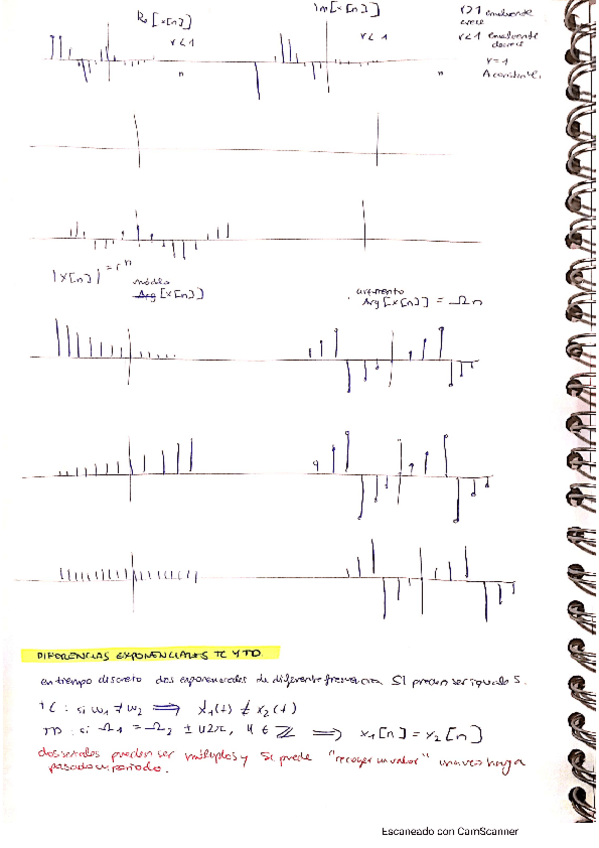 Re[x[n]]
r<1
n
Im[x[n]]
r<1
n
r>1 envolvente
crece
r<1 envolvente
decrece
r=1
A constante.
|x[n]| = rⁿ
módulo
Arg[x[n]]
argumento
Arg[x[n]] = Ωn
DIFERENCIAS EXPONENCIALES TC Y TD
en tiempo discreto dos exponenciales de diferente frecuencia SI pueden ser iguales.
TC: si ω1 ≠ ω2 ⟹ x1(t) ≠ x2(t)
TD: si Ω1 = Ω2 ± k2π, k ∈ ℤ ⟹ x1[n] = x2[n]
dos señales pueden ser múltiplos y si puede "recoger un valor" una vez haya
pasado un periodo.
Escaneado con CamScanner